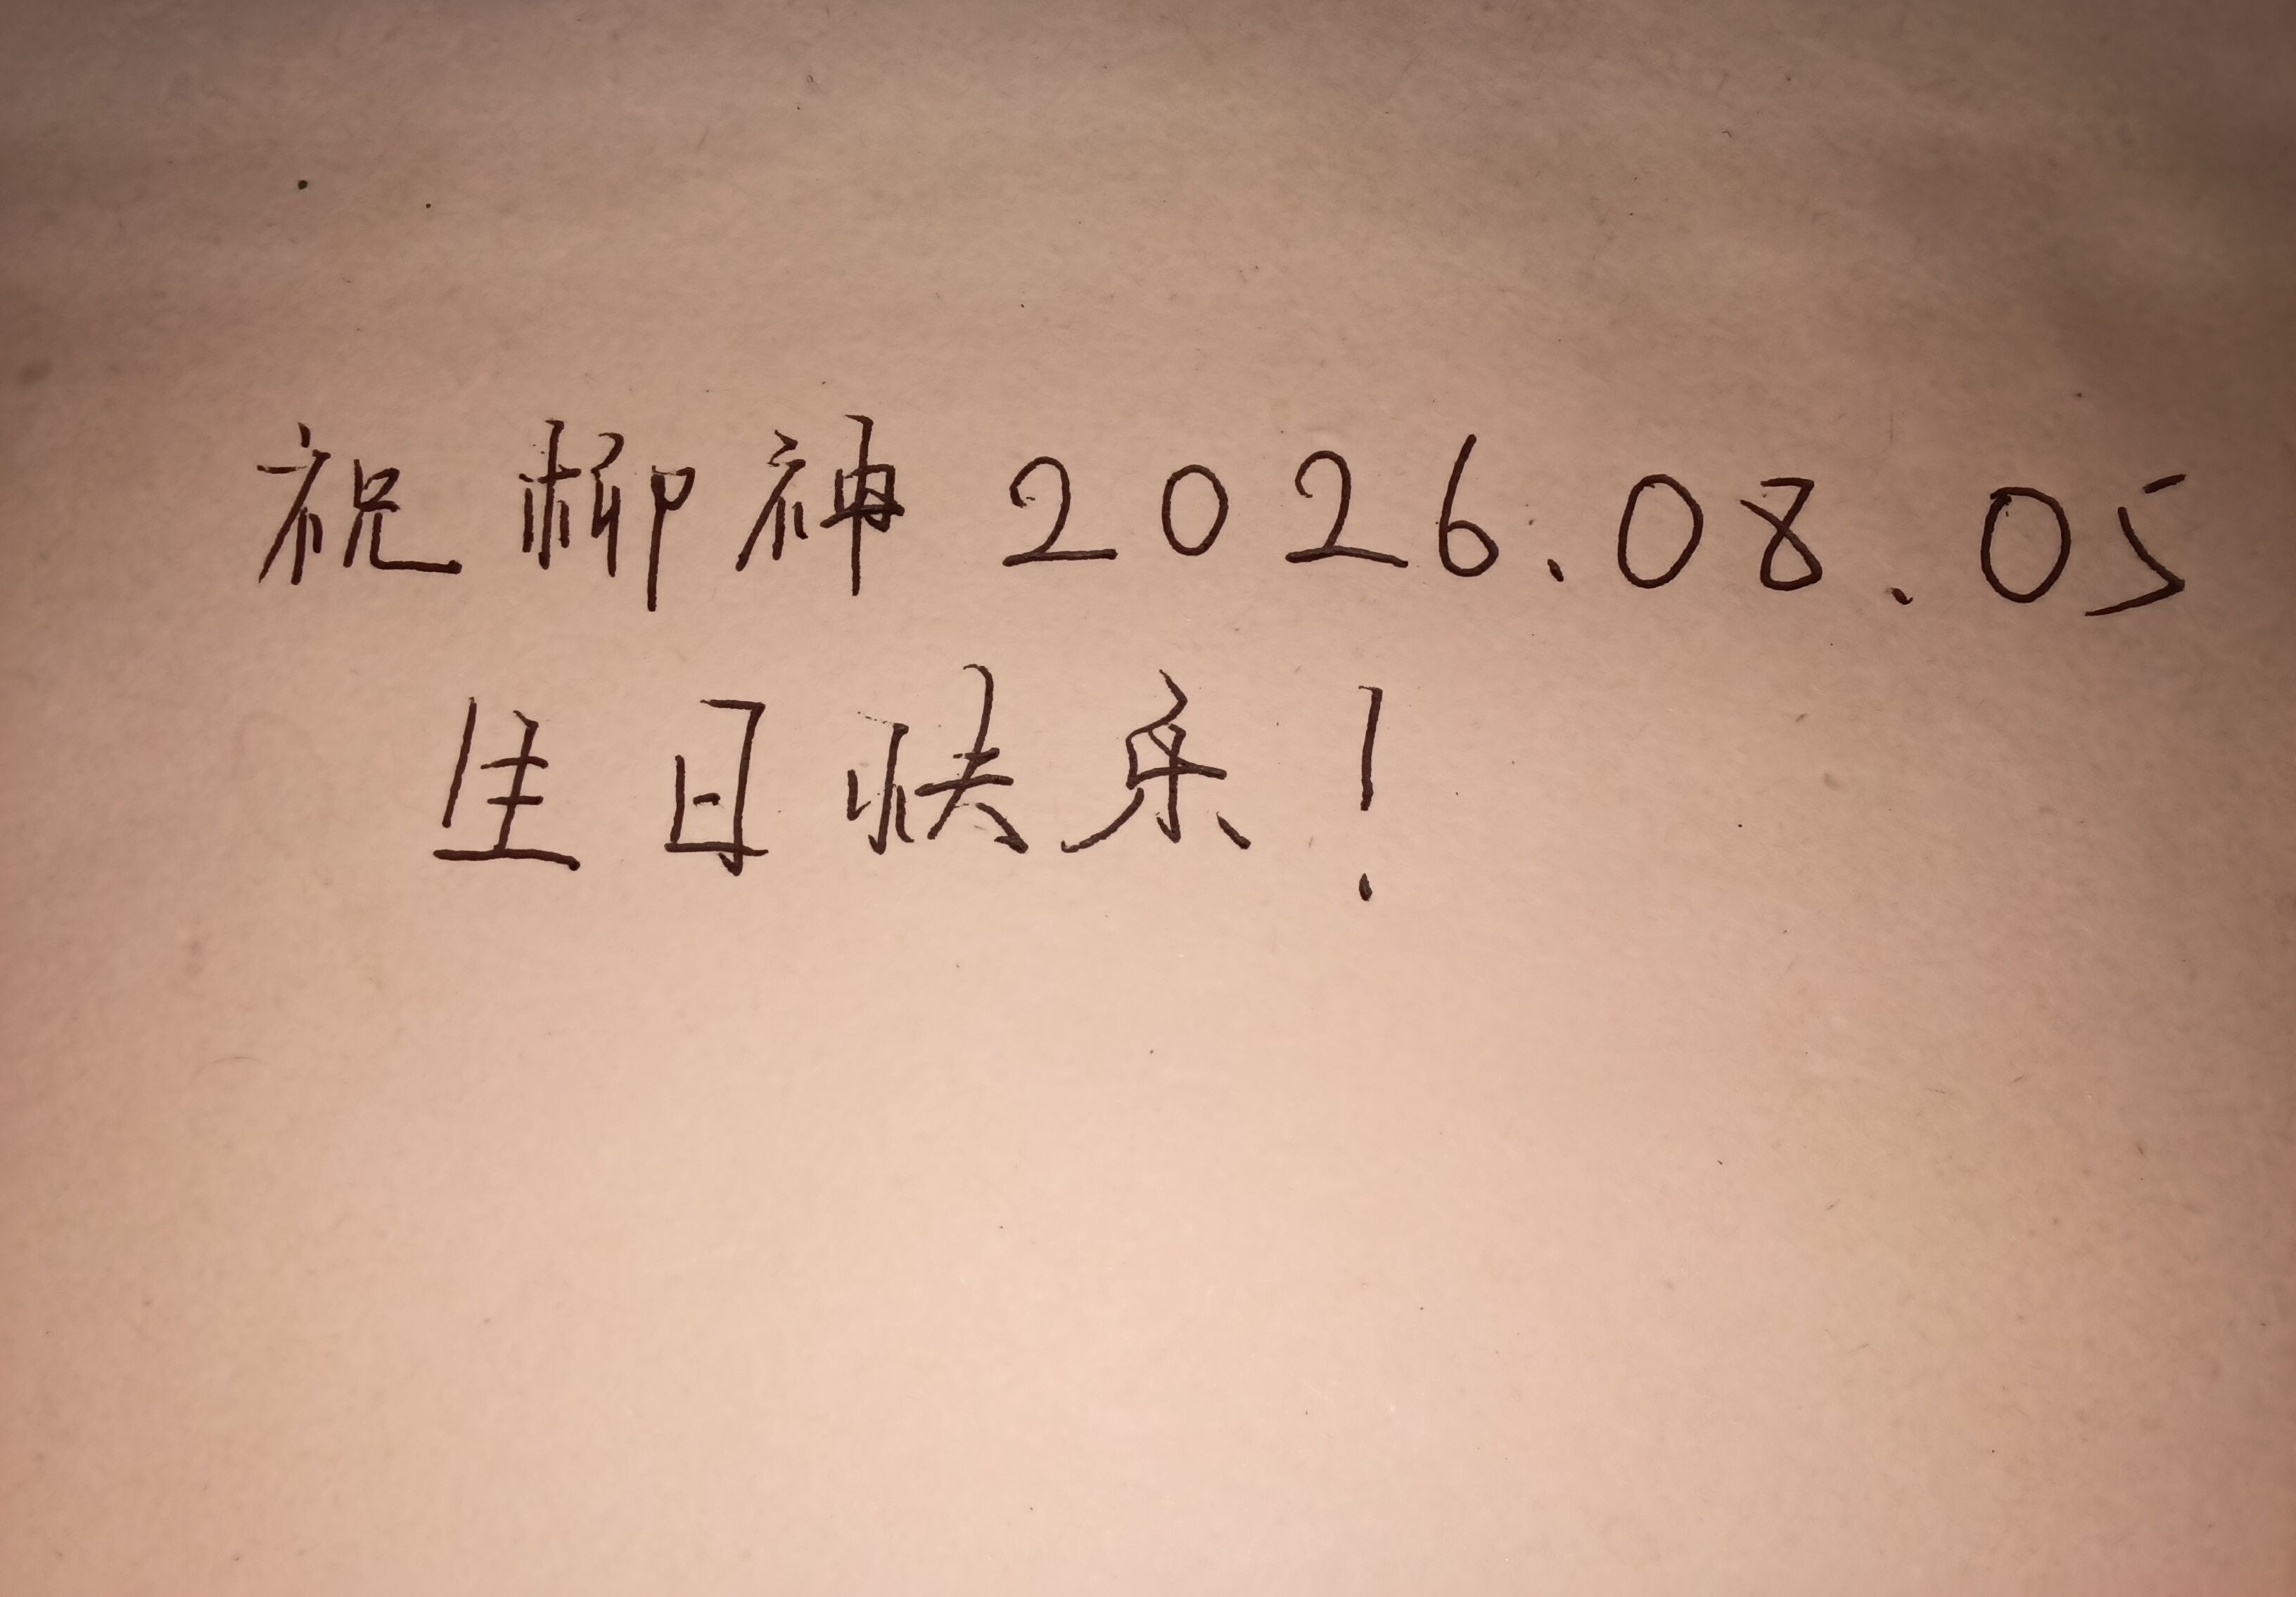 祝柳神2026.08.05
生日快乐!